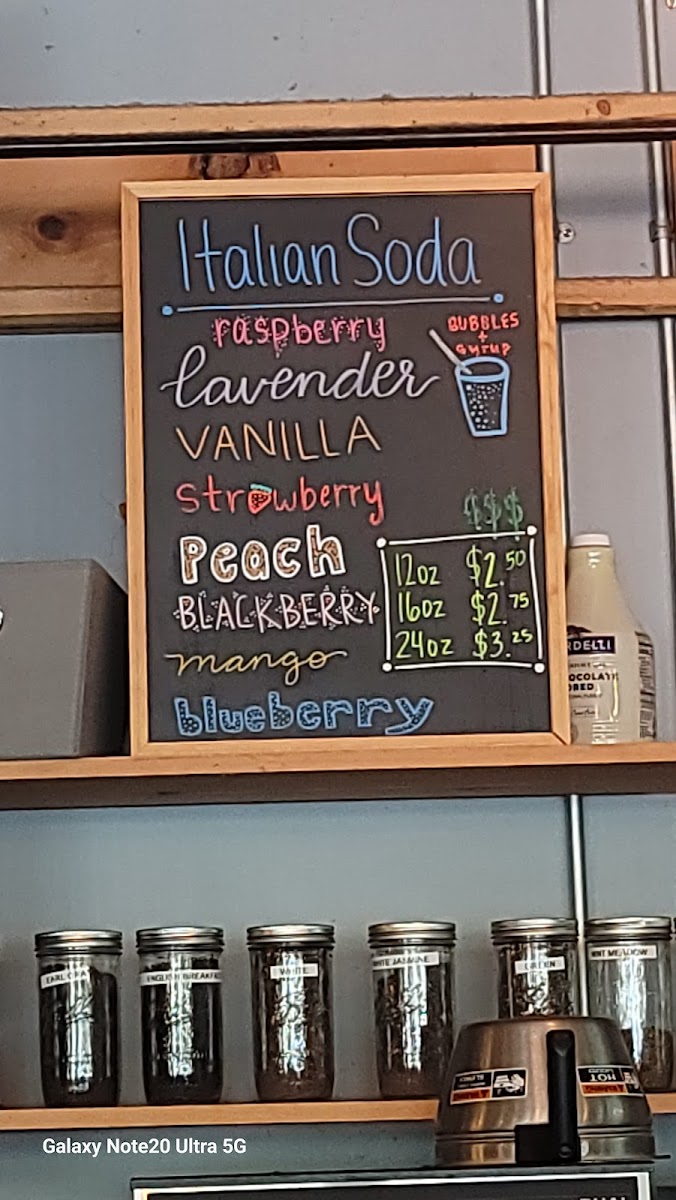 Italian Soda
raspberry
BUBBLES
+
Syrup
lavender
VANILLA
strawberry
$$$
Peach
12oz $2.50
BLACKBERRY
16oz $2.75
24oz $3.25
mango
blueberry
EARL
ENGLISH BREAKFAST
WHITE
WHITE JASMINE
GREEN
MINT MEADOW
HOT
Galaxy Note20 Ultra 5G